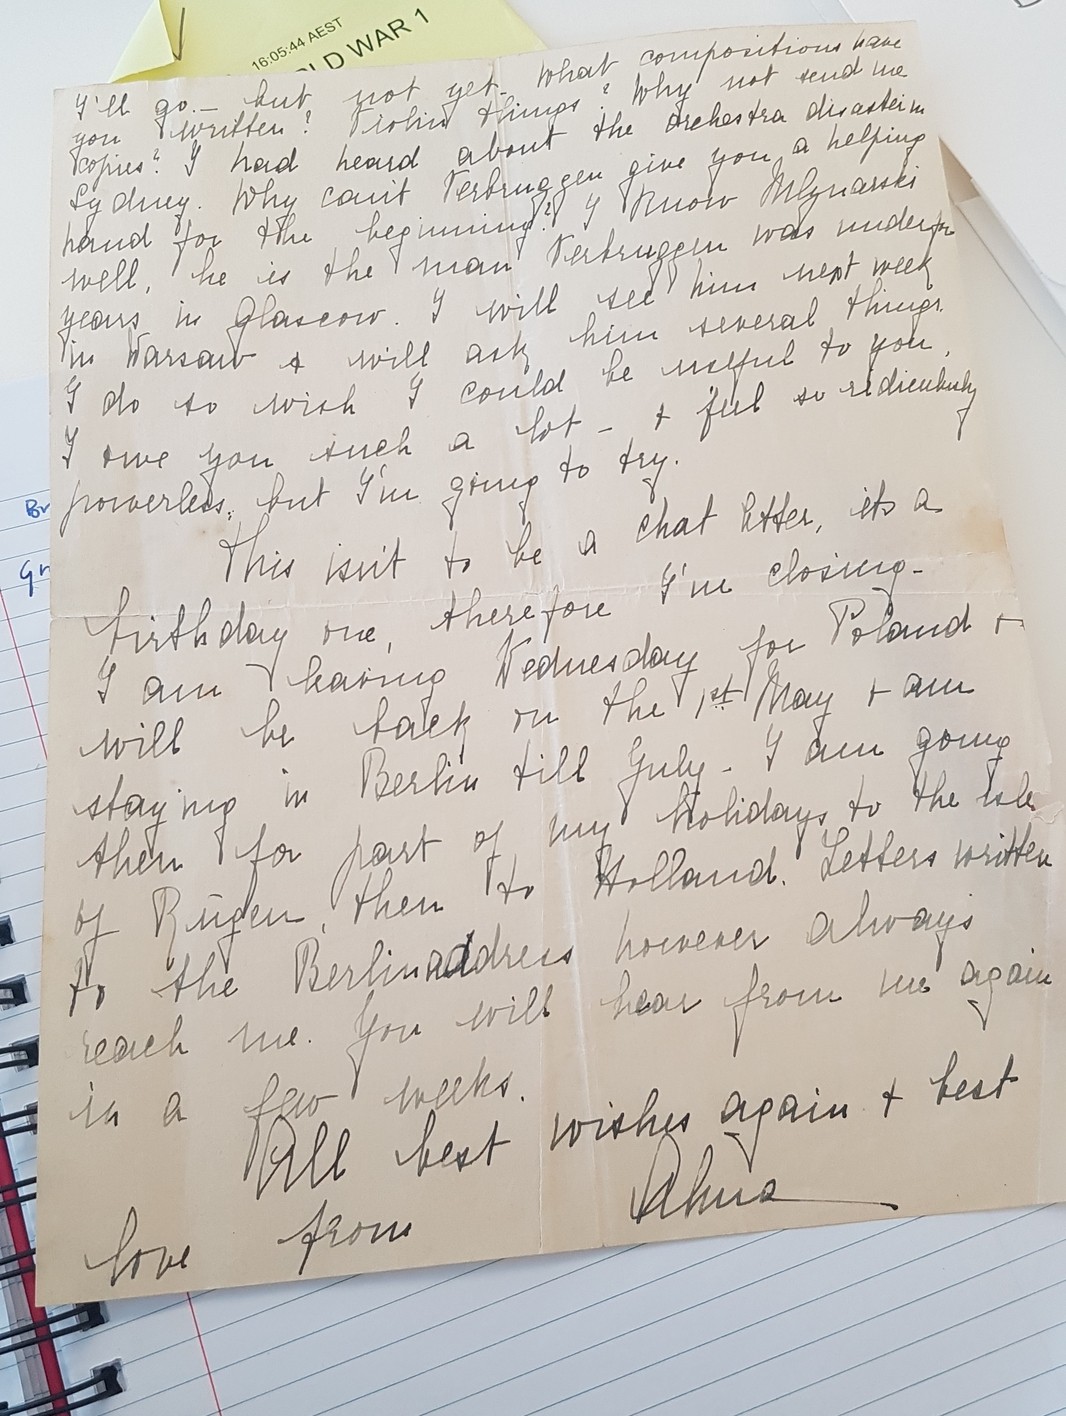 16:05:44 AEST
LD WAR 1
I'll go. — but not yet. What compositions have
you written? Violin things? Why not send me
copies? I had heard about the orchestra disaster in
Sydney. Why can't Verbrugghen give you a helping
hand for the beginning? I know Mlynarski
well, he is the man Verbruggen was under for
years in Glascow. I will see him next week
in Warsaw & will ask him several things.
I do so wish I could be useful to you,
I owe you such a lot — & feel so ridiculously
powerless, but I'm going to try.
This isn't to be a chat letter, its a
birthday one, therefore I'm closing —
I am leaving Wednesday for Poland &
will be back on the 1st May & am
staying in Berlin till July — I am going
then for part of my holidays to the isle
of Rügen, then to Holland. Letters written
to the Berlinaddress however always
reach me. You will hear from me again
in a few weeks.
All best wishes again & best
love from Alma
Br
Gr